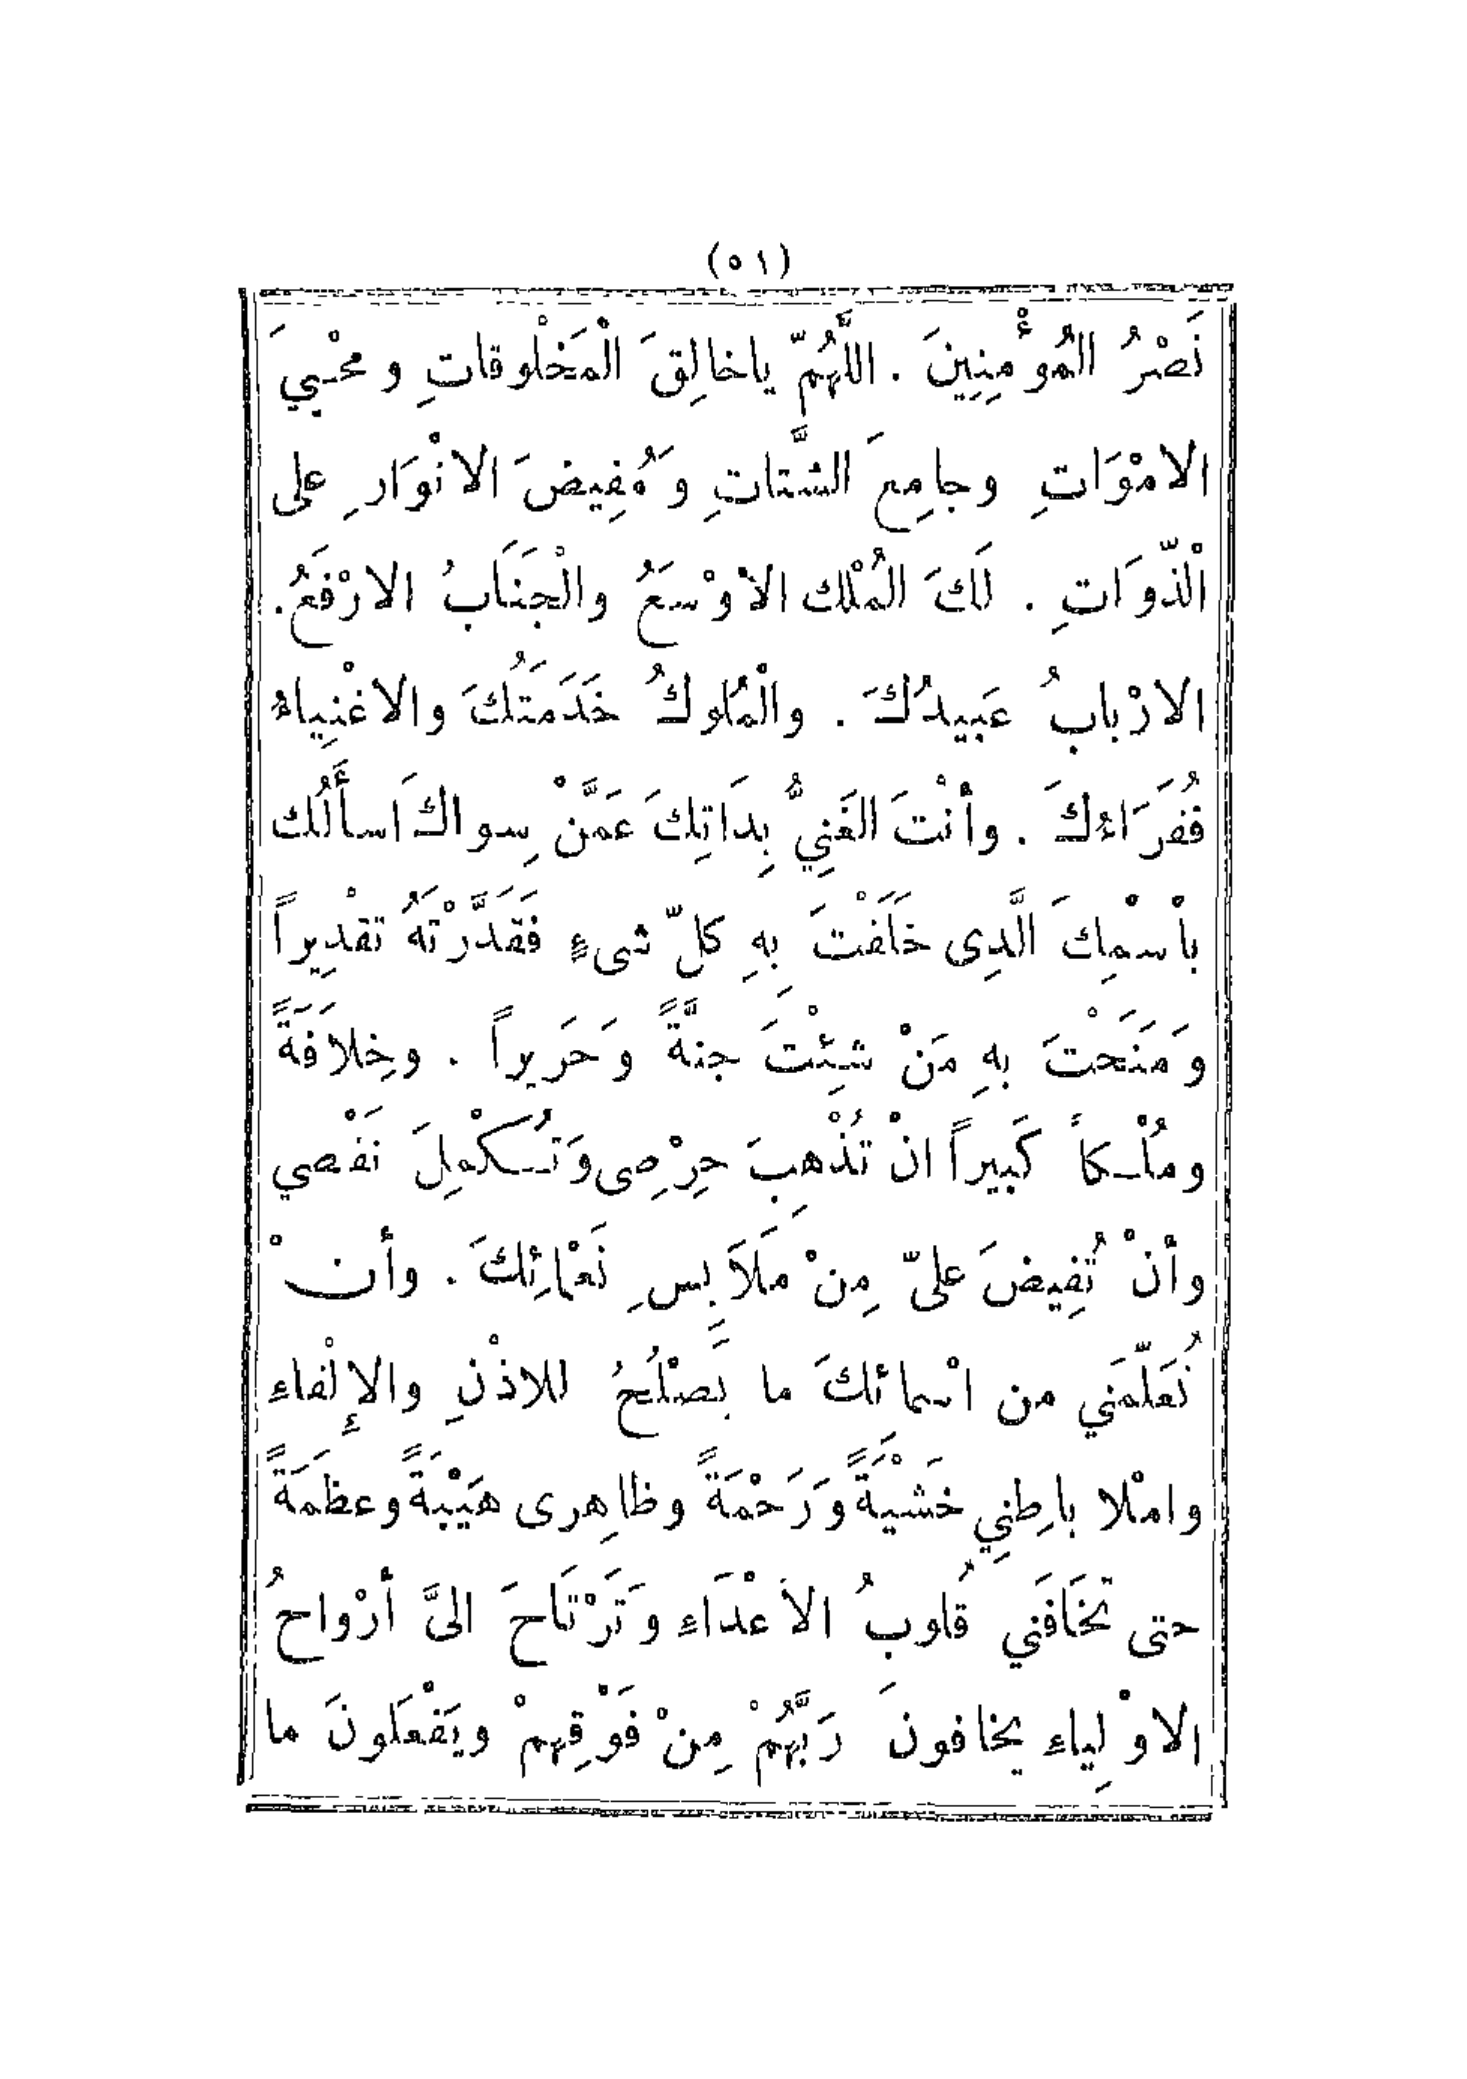 (٥١)
نَصْرُ المُؤْمِنِينَ . اللَّهُمّ ياخالِقَ الْمَخْلُوقاتِ ومحْيِيَ
الامْوَاتِ وجامِعَ الشَّتاتِ وَمُفِيضَ الانْوَارِ على
الْذّوَاتِ . لَكَ المُلْك الاَوْسَعُ والْجَنَابُ الارْفَعُ .
الارْبابُ عَبيدُكَ . والْمُلوكُ خَدَمَتُكَ والاغْنِياءُ
فُقَرَاءُكَ . وأنْتَ الغَنِيُّ بِذَاتِكَ عَمَّنْ سِواكَ اسأَلُك
بأسْمِكَ الَّذِى خَلَقْتَ بِهِ كلّ شىءٍ فَقَدَّرْتَهُ تقْدِيراً
وَمَنَحْتَ بهِ مَنْ شِئْتَ جنَّةً وَحَريراً . وخِلافَةً
ومُلْكاً كَبيراً انْ تُذْهِبَ حِرْصِى وَتُكْمِلَ نَقْصي
وأنْ تُفِيضَ علىّ مِنْ مَلَابِسِ نَعْمائِكَ . وأنْ
تُعَلّمَني من اسْمائكَ ما يَصْلُحُ للاذْنِ والإِلْقاءِ
وامْلا باطِنِي خَشْيَةً وَرَحْمَةً وظاهِرى هَيْبَةً وعظَمَةً
حتى تخَافَني قُلوبُ الاَعْدَاءِ وَتَرْتَاحَ الىَّ أرْواحُ
الاوْلِياءِ يخافونَ رَبَّهُمْ مِنْ فَوْقِهِمْ ويَفْعَلونَ ما